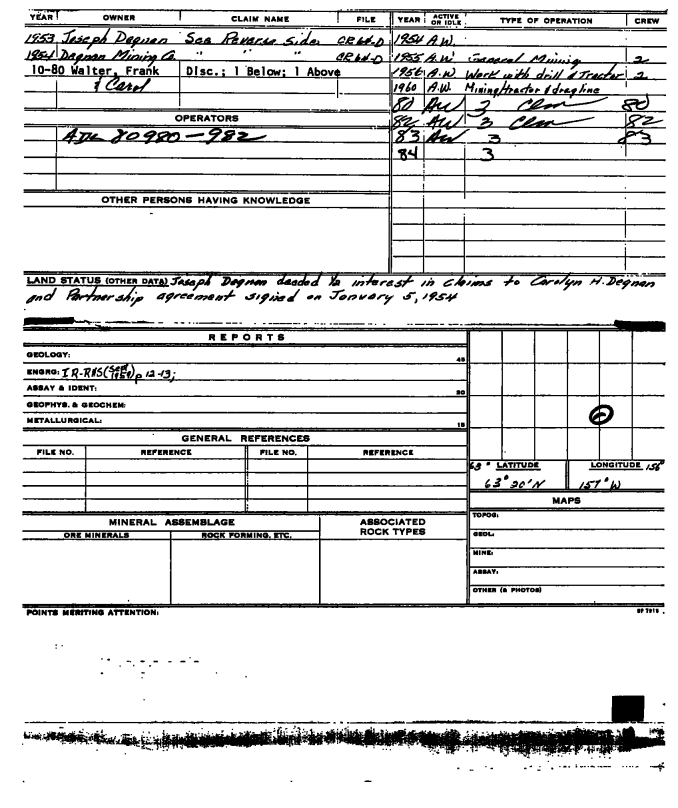 YEAR OWNER CLAIM NAME FILE
1953 Joseph Degnan See Reverse Side
1954 Degnan Mining Co. " " "
10-80 Walter, Frank Disc.; 1 Below; 1 Above
& Carol
OPERATORS
ADL 80980-982
OTHER PERSONS HAVING KNOWLEDGE
YEAR ACTIVE OR IDLE TYPE OF OPERATION CREW
1954 A.W.
1955 A.W. General Mining 2
1956 A.W. Work with drill & Tractor 2
1960 A.W. Mining/tractor & dragline
80 AW 3 Clm 80
82 AW 3 Clm 82
83 AW 3 83
84 3
LAND STATUS (OTHER DATA) Joseph Degnan deeded ½ interest in claims to Carolyn H. Degnan
and Partnership agreement signed on January 5, 1954
REPORTS
GEOLOGY:
45
ENGRG: IR-RNS( 1959) p 12-13;
ASSAY & IDENT:
30
GEOPHYS. & GEOCHEM:
METALLURGICAL:
15
GENERAL REFERENCES
FILE NO. REFERENCE FILE NO. REFERENCE
MINERAL ASSEMBLAGE
ORE MINERALS ROCK FORMING, ETC.
ASSOCIATED ROCK TYPES
63° LATITUDE LONGITUDE 156°
63°20'N 157°W
MAPS
TOPOG:
GEOL:
MINE:
ASSAY:
OTHER (& PHOTOS)
POINTS MERITING ATTENTION: